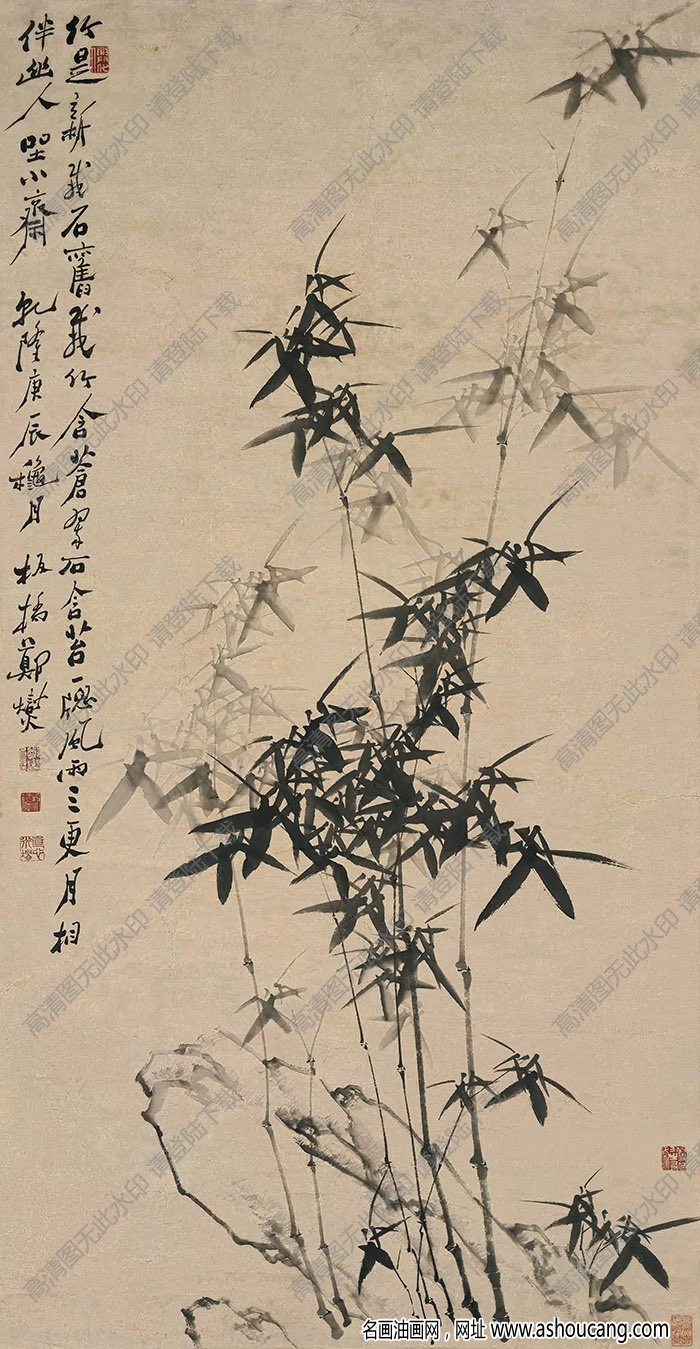 竹是新栽石舊栽竹含蒼翠石含苔一窓風雨三更月相
伴幽人坐小齋　乾隆庚辰穐月　板橋鄭燮
高清图无此水印 请登陆下载
名画油画网，网址 www.ashoucang.com